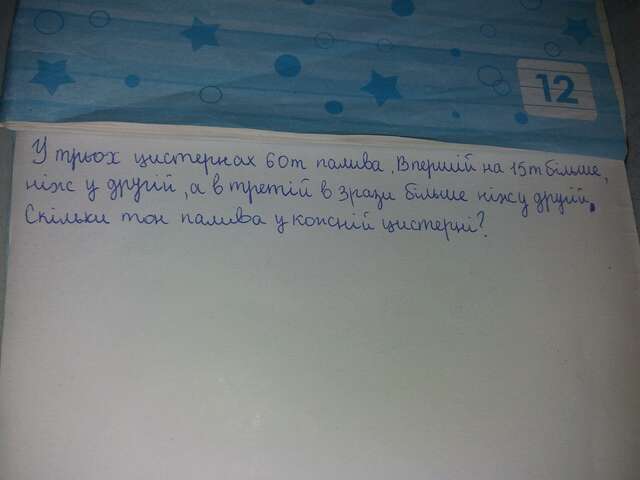 12
У трьох цистернах 60т палива. В першій на 15т більше,
ніж у другій, а в третій в 3 рази більше ніж у другій.
Скільки тон палива у кожній цистерні?